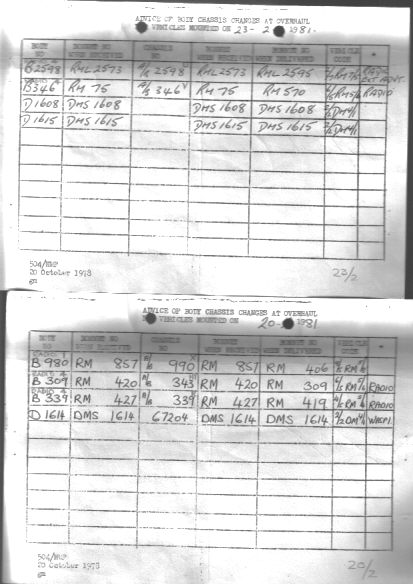 ADVICE OF BODY CHASSIS CHANGES AT OVERHAUL
VEHICLES MOUNTED ON 23- 2 1981.
BODY NO BONNET NO WHEN RECEIVED CHASSIS NO BONNET WHEN RECEIVED BONNET NO WHEN DELIVERED VEHICLE CODE *
B2598 RML2573 2598 RML2573 RML2595
B346 RM 75 346 RM 75 RM 570 RADIO
D1608 DMS 1608 DMS 1608 DMS 1608
D1615 DMS 1615 DMS 1615 DMS 1615
504/
20 October 1978
gm
23/2
ADVICE OF BODY CHASSIS CHANGES AT OVERHAUL
VEHICLES MOUNTED ON 20- 1981
BODY NO BONNET NO WHEN RECEIVED CHASSIS NO BONNET WHEN RECEIVED BONNET NO WHEN DELIVERED VEHICLE CODE *
RADIO A
B 980 RM 857 990 RM 857 RM 406
RADIO A
B 309 RM 420 343 RM 420 RM 309 RADIO
RADIO A
B 339 RM 427 339 RM 427 RM 419 RADIO
D 1614 DMS 1614 67204 DMS 1614 DMS 1614
504/
20 October 1978
gm
20/2